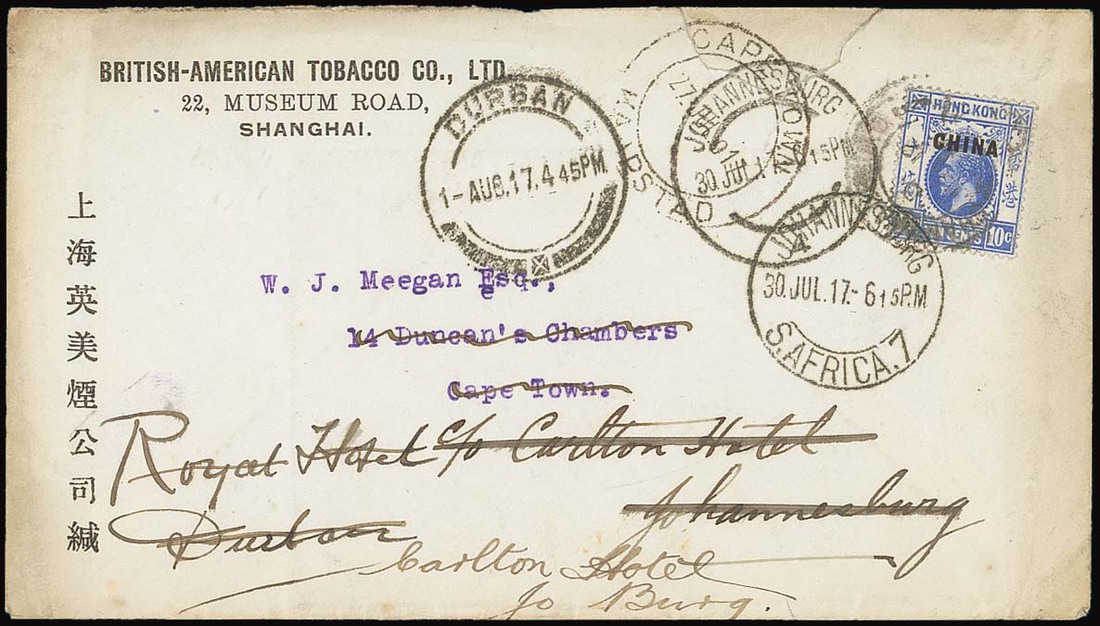 BRITISH-AMERICAN TOBACCO CO., LTD.
22, MUSEUM ROAD,
SHANGHAI.
上海英美煙公司緘
DURBAN
1-AUG.17.4 45PM
CAPE TOWN
KAAPSTAD
27.
JOHANNESBURG
30 JUL 17 6 15PM
HONG KONG
CHINA
10c
JOHANNESBURG
30 JUL.17-6 15PM
S.AFRICA.7
W. J. Meegan Esq.,
14 Duncan's Chambers
Cape Town.
Royal Hotel c/o Carlton Hotel
Durban Johannesburg
Carlton Hotel
Jo Burg.